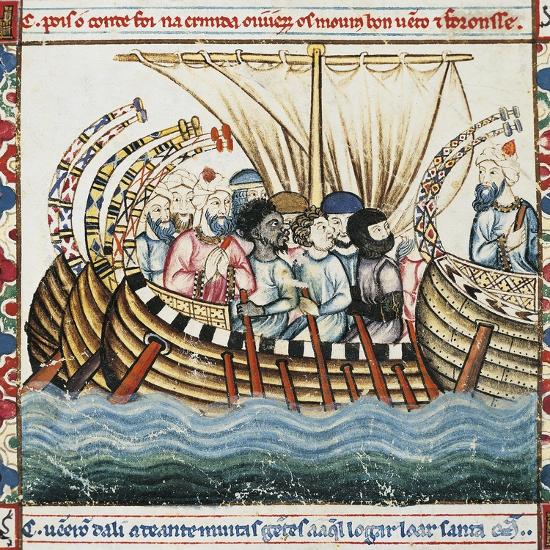 C. pois o conte foi na ermida ouuerõ os mouros bon uẽto ⁊ foronsse.
C. uẽerõ dali adeante muitas gẽtes a aql logar loar santa